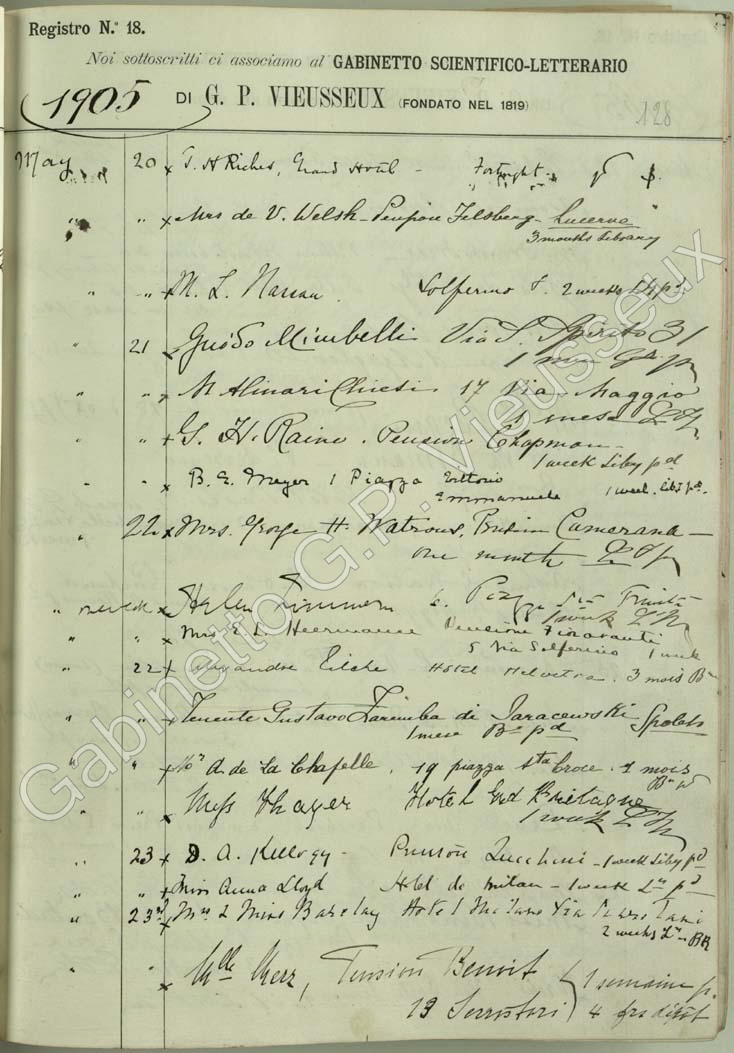 Registro N.º 18.
Noi sottoscritti ci associamo al GABINETTO SCIENTIFICO-LETTERARIO
1905 DI G. P. VIEUSSEUX (FONDATO NEL 1819)
128
May 20 x T. H Riches, Grand Hotel - Fortnight
" " x Mrs de V. Welsh - Pension Felsberg - Lucerne
3 months Library
" " x M. L. Solferino 2 weeks pd.
" 21 x Guido Mimbelli Via S. Spirito 31
1
" " x M Alinari Chiesi 17 Via Maggio
1 mese
" " x G. H. Raine. Pension Chapman -
1 week Liby pd
" " x B. E. Meyer 1 Piazza Vittorio
Emmanuele 1 week. Liby pd.
" 22 x Mrs. George H. Watrous, Pension Camerana -
one month
" x Helen Zimmern 6. Piazza Sta Trinità
1 week
" " x Mrs E. L. Heermance Pensione Fioravanti
5 Via Solferino 1 week
" 22 x Hotel Helvetia. 3 mois
" " x Tenente Gustavo Zaremba di Jaracewski Spoleto
1 mese pd
" " x A. de La Chapelle. 19 piazza Sta Croce. 1 mois
" " x Miss Thayer Hotel Gd Bretagne
1 week
" 23 x D. A. Kellogg - Pension Lucchini - 1 week Liby pd
" " x Miss Anna Lloyd Hotel de Milan - 1 week pd
" 23 x Mrs & Miss Barclay Hotel Milano Via
2 weeks
" " x Mlle Merz, Pension Benoit 1 semaine p.
13 Serristori 4 frs dépôt
Gabinetto G.P. Vieusseux